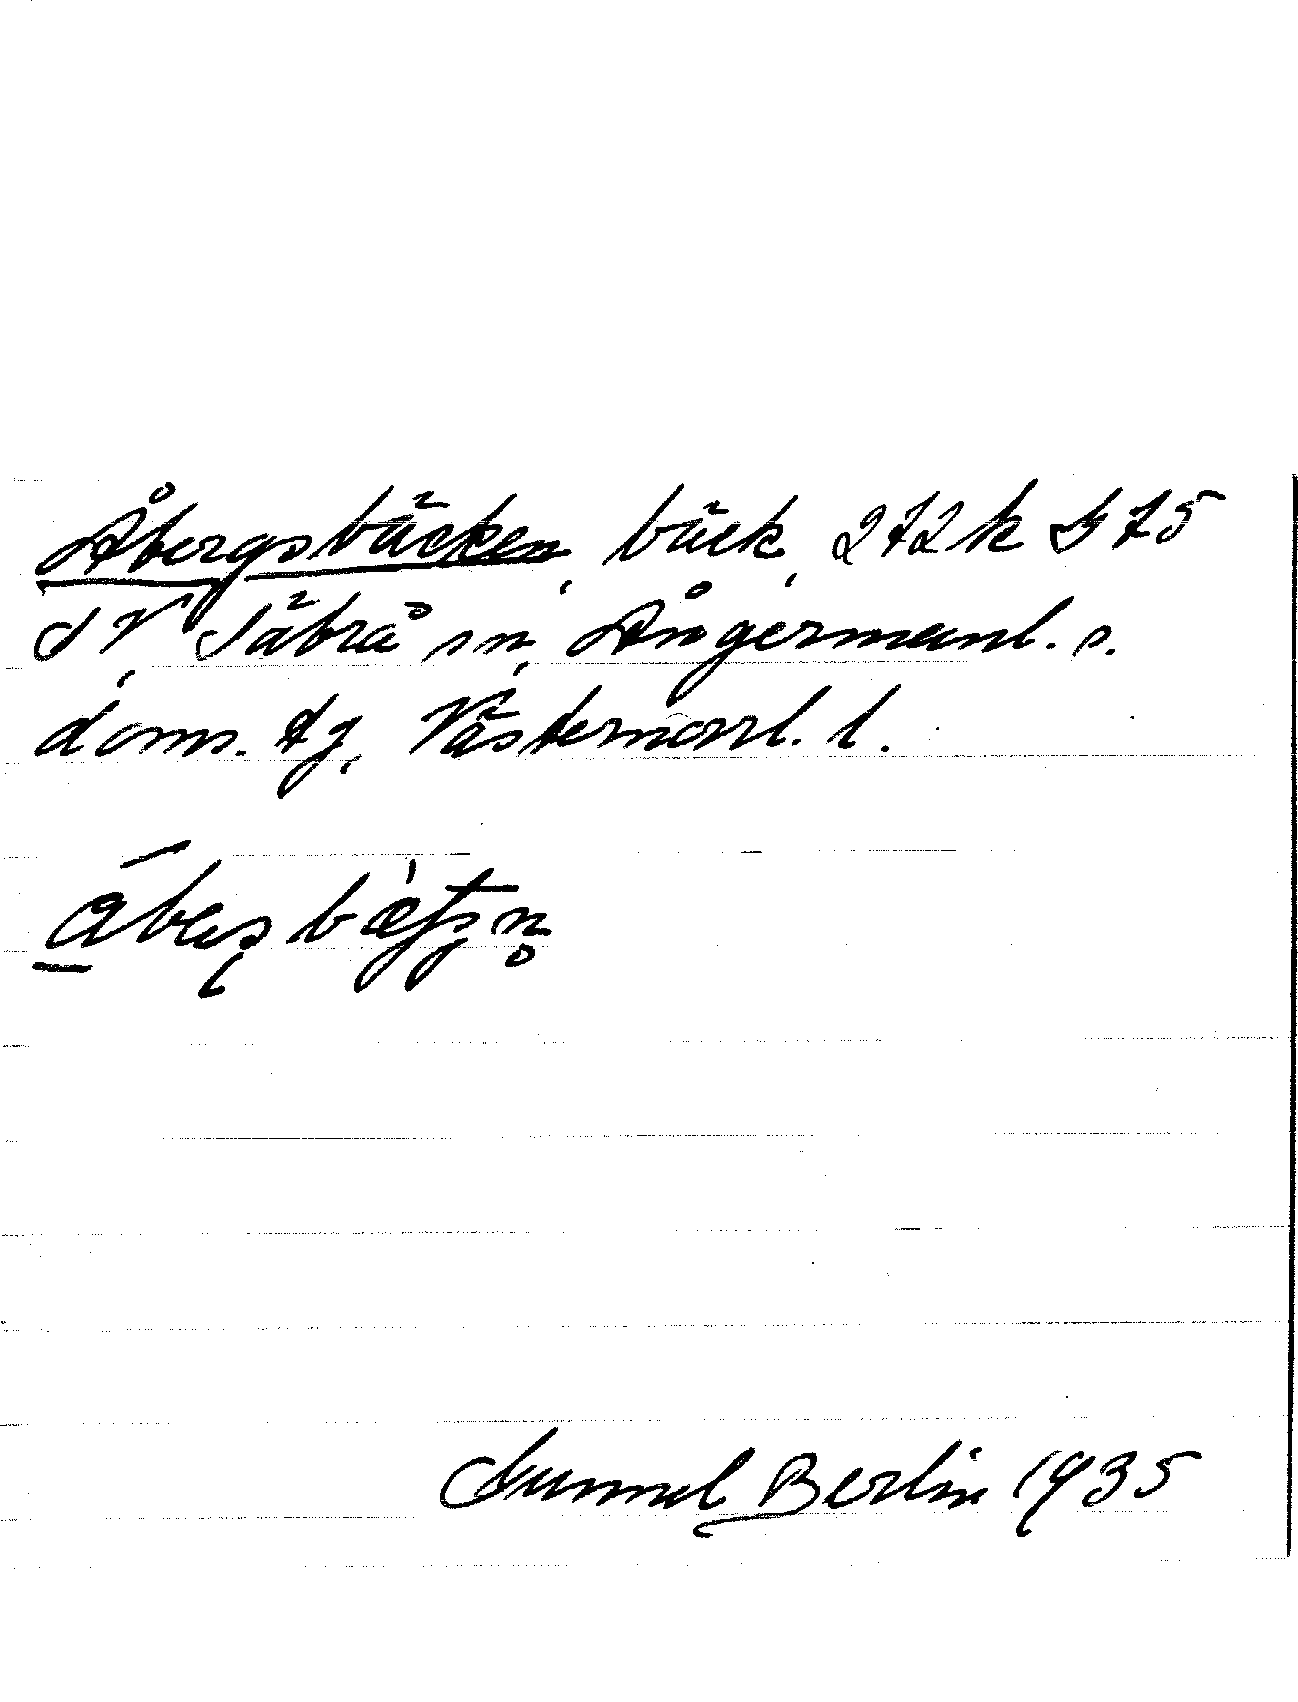 Åbergsbäcken, bäck, 272 k G 75
SV, Säbrå sn, Ångermanl. s.
doms. tg, Västernorrl. l.
Gunnel Berlin 1935